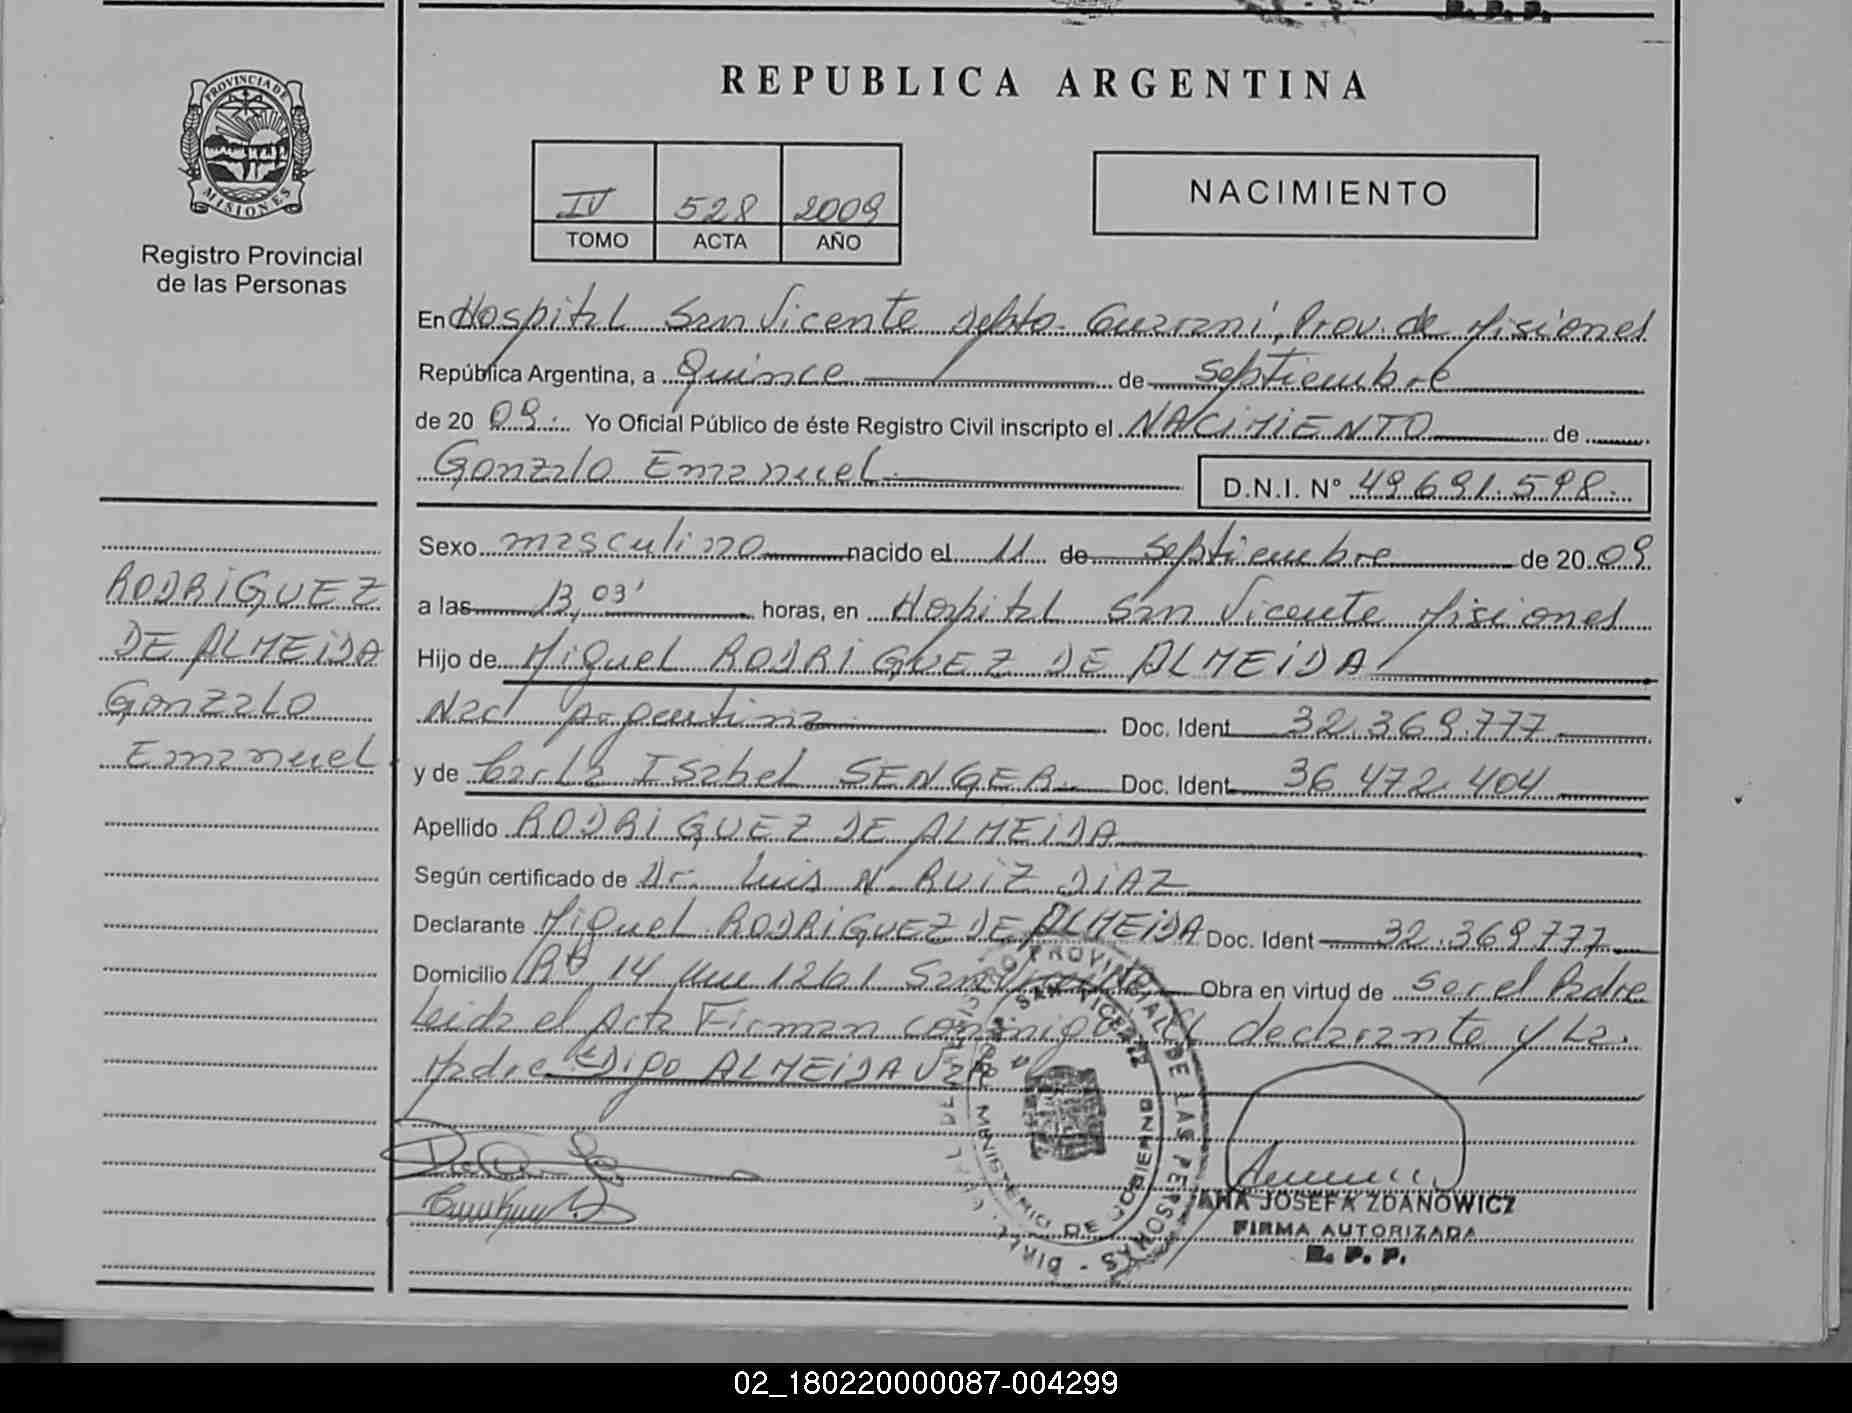 REPUBLICA ARGENTINA
PROVINCIA DE
MISIONES
Registro Provincial
de las Personas
IV 528 2009
TOMO ACTA AÑO
NACIMIENTO
En Hospital San Vicente Depto. Guarani, Prov. de Misiones
República Argentina, a Quince de Septiembre
de 20 09. Yo Oficial Público de éste Registro Civil inscripto el NACIMIENTO de
Gonzalo Emanuel D.N.I. N° 49.691.598.
Sexo masculino nacido el 11 de Septiembre de 20 09
a las 13,03' horas, en Hospital San Vicente Misiones
Hijo de Miguel RODRIGUEZ DE ALMEIDA
Nac. Argentina Doc. Ident 32.369.777
y de Carla Isabel SENGER Doc. Ident 36.472.404
Apellido RODRIGUEZ DE ALMEIDA
Según certificado de Dr. Luis N. RUIZ DIAZ
Declarante Miguel RODRIGUEZ DE ALMEIDA Doc. Ident 32.369.777
Domicilio 14 1261 San Vicente Obra en virtud de Ser el Padre
Leida el Acta Firman conmigo el declarante y La
Madre Digo ALMEIDA Vale
RODRIGUEZ
DE ALMEIDA
Gonzalo
Emanuel
PROVINCIAL DE LAS PERSONAS
SAN VICENTE
MINISTERIO DE GOBIERNO
ANA JOSEFA ZDANOWICZ
FIRMA AUTORIZADA
R. P. P.
02_180220000087-004299